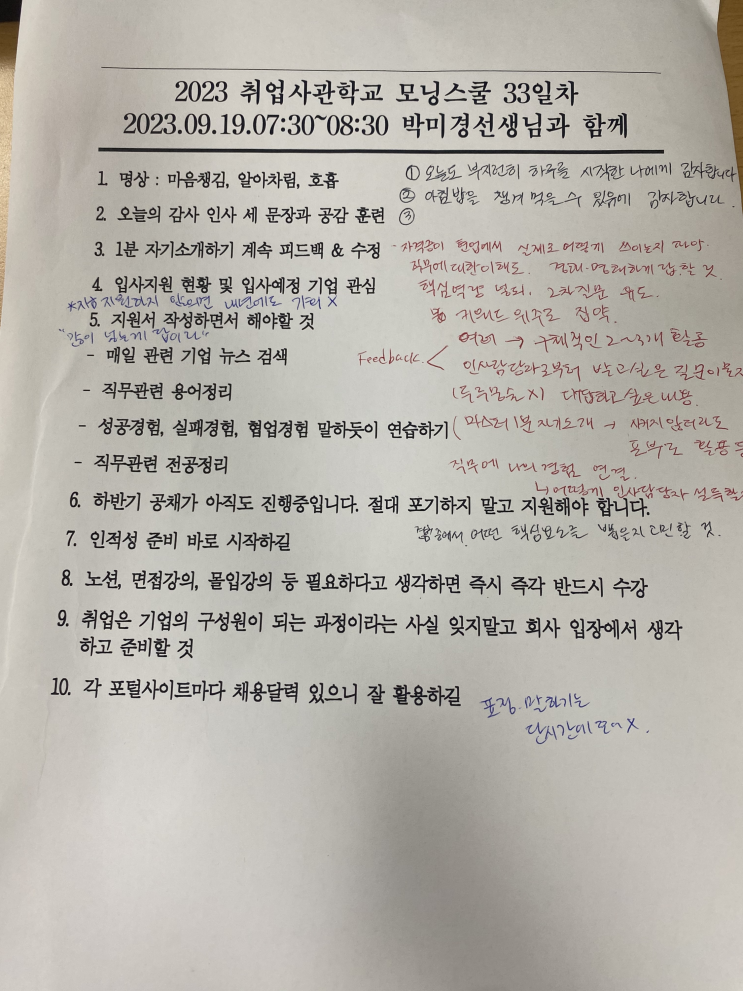 2023 취업사관학교 모닝스쿨 33일차
2023.09.19.07:30~08:30 박미경선생님과 함께
1. 명상 : 마음챙김, 알아차림, 호흡
① 오늘도 부지런히 하루를 시작한 나에게 감사합니다
2. 오늘의 감사 인사 세 문장과 공감 훈련
② 아침밥을 챙겨 먹을 수 있음에 감사합니다.
③
3. 1분 자기소개하기 계속 피드백 & 수정
- 자격증이 현업에서 실제로 어떻게 쓰이는지 파악.
직무에 대한 이해도. 명료하게 답할 것.
4. 입사지원 현황 및 입사예정 기업 관심
핵심역량 노출, 2차질문 유도.
*지원하지 않으면 내년에도 기회 X
키워드 위주로 집약.
5. 지원서 작성하면서 해야할 것
"많이 넣는게 답이다"
Feedback. < 어레 → 구체적인 2~3개 활용
- 매일 관련 기업 뉴스 검색
인사담당자로부터 받고싶은 질문이 뭔지
- 직무관련 용어정리
(두루뭉술 X) 대답하고 싶은 내용.
- 성공경험, 실패경험, 협업경험 말하듯이 연습하기
(마스터 1분 자기소개 → 시키지 않더라도
포부로 활용
- 직무관련 전공정리
직무에 나의 경험 연결.
↳ 어떻게 인사담당자 설득할
6. 하반기 공채가 아직도 진행중입니다. 절대 포기하지 말고 지원해야 합니다.
7. 인적성 준비 바로 시작하길
중에서 어떤 핵심요소를 뽑을지 고민할 것.
8. 노션, 면접강의, 몰입강의 등 필요하다고 생각하면 즉시 즉각 반드시 수강
9. 취업은 기업의 구성원이 되는 과정이라는 사실 잊지말고 회사 입장에서 생각
하고 준비할 것
10. 각 포털사이트마다 채용달력 있으니 잘 활용하길
표정, 말하기는
단시간에 X.